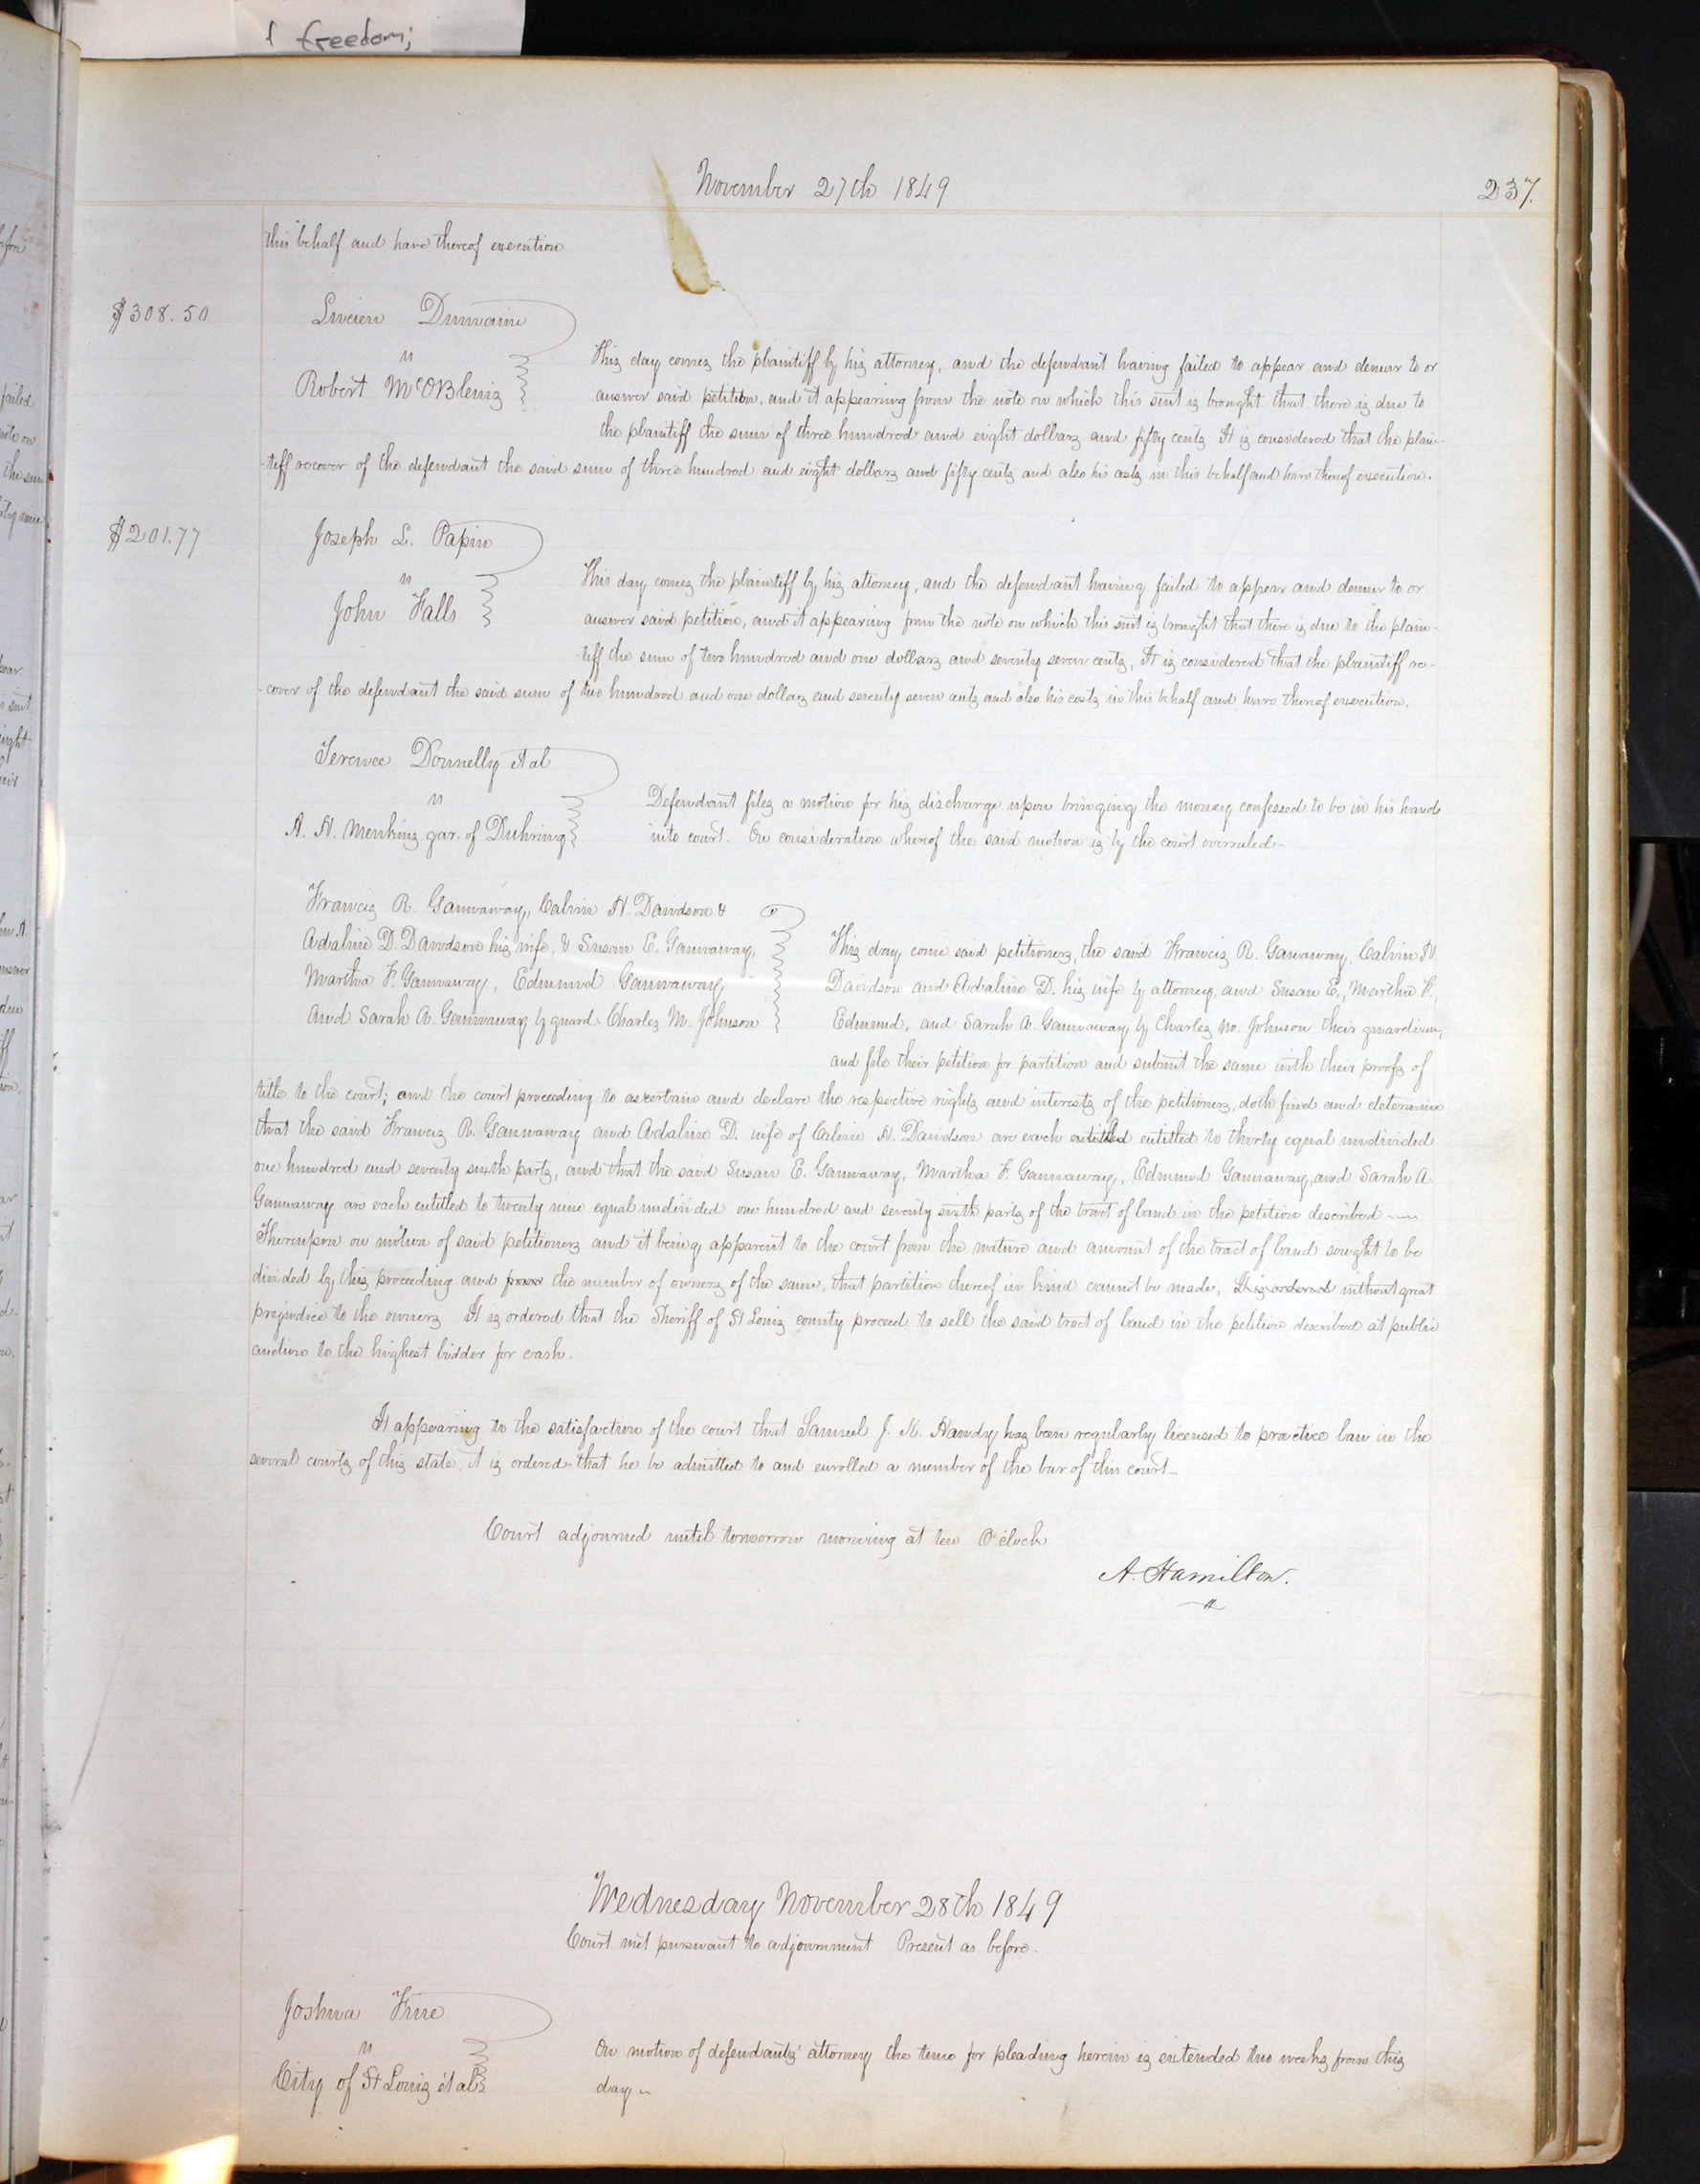 f freedom;
November 27th 1849
237.
this behalf and have thereof execution
$308.50
Lucien Dumaine
vs
Robert McOBlenis
This day comes the plaintiff by his attorney, and the defendant having failed to appear and demur to or
answer said petition, and it appearing from the note on which this suit is brought that there is due to
the plaintiff the sum of three hundred and eight dollars and fifty cents It is considered that the plain-
-tiff recover of the defendant the said sum of three hundred and eight dollars and fifty cents and also his costs in this behalf and have thereof execution.
$201.77
Joseph L. Papin
vs
John Halls
This day comes the plaintiff by his attorney, and the defendant having failed to appear and demur to or
answer said petition, and it appearing from the note on which this suit is brought that there is due to the plain-
-tiff the sum of two hundred and one dollars and seventy seven cents, It is considered that the plaintiff re-
-cover of the defendant the said sum of two hundred and one dollars and seventy seven cents and also his costs in this behalf and have thereof execution.
Terence Donnelly et al
vs
A. H. Menkins gar. of Duhring
Defendant files a motion for his discharge upon bringing the money confessed to be in his hands
into court. On consideration whereof the said motion is by the court overruled-
Francis R. Gannaway, Calvin H. Davidson &
Adaline D. Davidson his wife, & Susan E. Gannaway,
Martha F. Gannaway, Edmund Gannaway,
And Sarah A. Gannaway by guard. Charles M. Johnson
This day come said petitioners, the said Francis R. Gannaway, Calvin H.
Davidson and Adaline D. his wife by attorney, and Susan E., Martha F.,
Edmund, and Sarah A. Gannaway by Charles M. Johnson their guardian,
and file their petition for partition and submit the same with their proofs of
title to the court; and the court proceeding to ascertain and declare the respective rights and interests of the petitioners, doth find and determine
that the said Francis R. Gannaway and Adaline D. wife of Calvin H. Davidson are each entitled entitled to thirty equal undivided
one hundred and seventy sixth parts, and that the said Susan E. Gannaway, Martha F. Gannaway, Edmund Gannaway, and Sarah A
Gannaway are each entitled to twenty nine equal undivided one hundred and seventy sixth parts of the tract of land in the petition described
Thereupon on motion of said petitioners and it being apparent to the court from the nature and amount of the tract of land sought to be
divided by this proceeding and the number of owners of the same, that partition thereof in kind cannot be made, It is ordered without great
prejudice to the owners It is ordered that the Sheriff of St Louis county proceed to sell the said tract of land in the petition described at public
auction to the highest bidder for cash.
It appearing to the satisfaction of the court that Samuel J. K. Handy has been regularly licensed to practice law in the
several courts of this state, it is ordered that he be admitted to and enrolled a member of the bar of this court-
Court adjourned until tomorrow morning at ten O'clock
A. Hamilton.
Wednesday November 28th 1849
Court met pursuant to adjournment Present as before.
Joshua Free
vs
City of St Louis et als
On motion of defendants' attorney the time for pleading herein is extended two weeks from this
day-